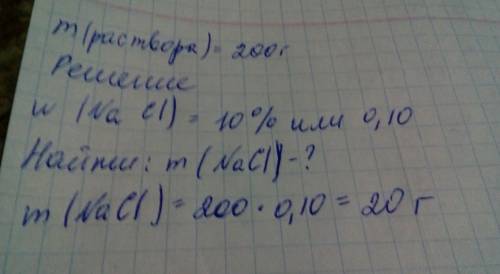 m(раствора) = 200г
Решение
w (Na Cl) = 10% или 0,10
Найти: m (NaCl) - ?
m (NaCl) = 200 · 0,10 = 20 г